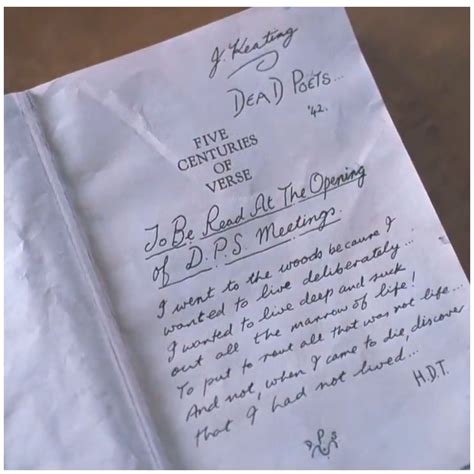 J. Keating
DEAD POETS...
'42.
FIVE
CENTURIES
OF
VERSE
To Be Read At The Opening
of D.P.S. Meetings
I went to the woods because I
wanted to live deliberately...
I wanted to live deep and suck
out all the marrow of life!
To put to rout all that was not life...
And not, when I came to die, discover
that I had not lived...
H.D.T.